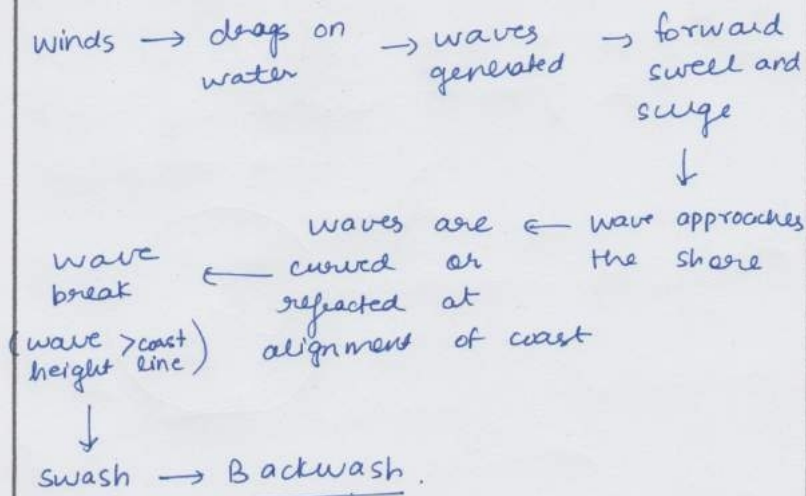 winds → drags on water → waves generated → forward swell and surge
↓
wave approaches the shore
← waves are curved or refracted at alignment of coast
← wave break
(wave height > coast line)
↓
swash → Backwash.